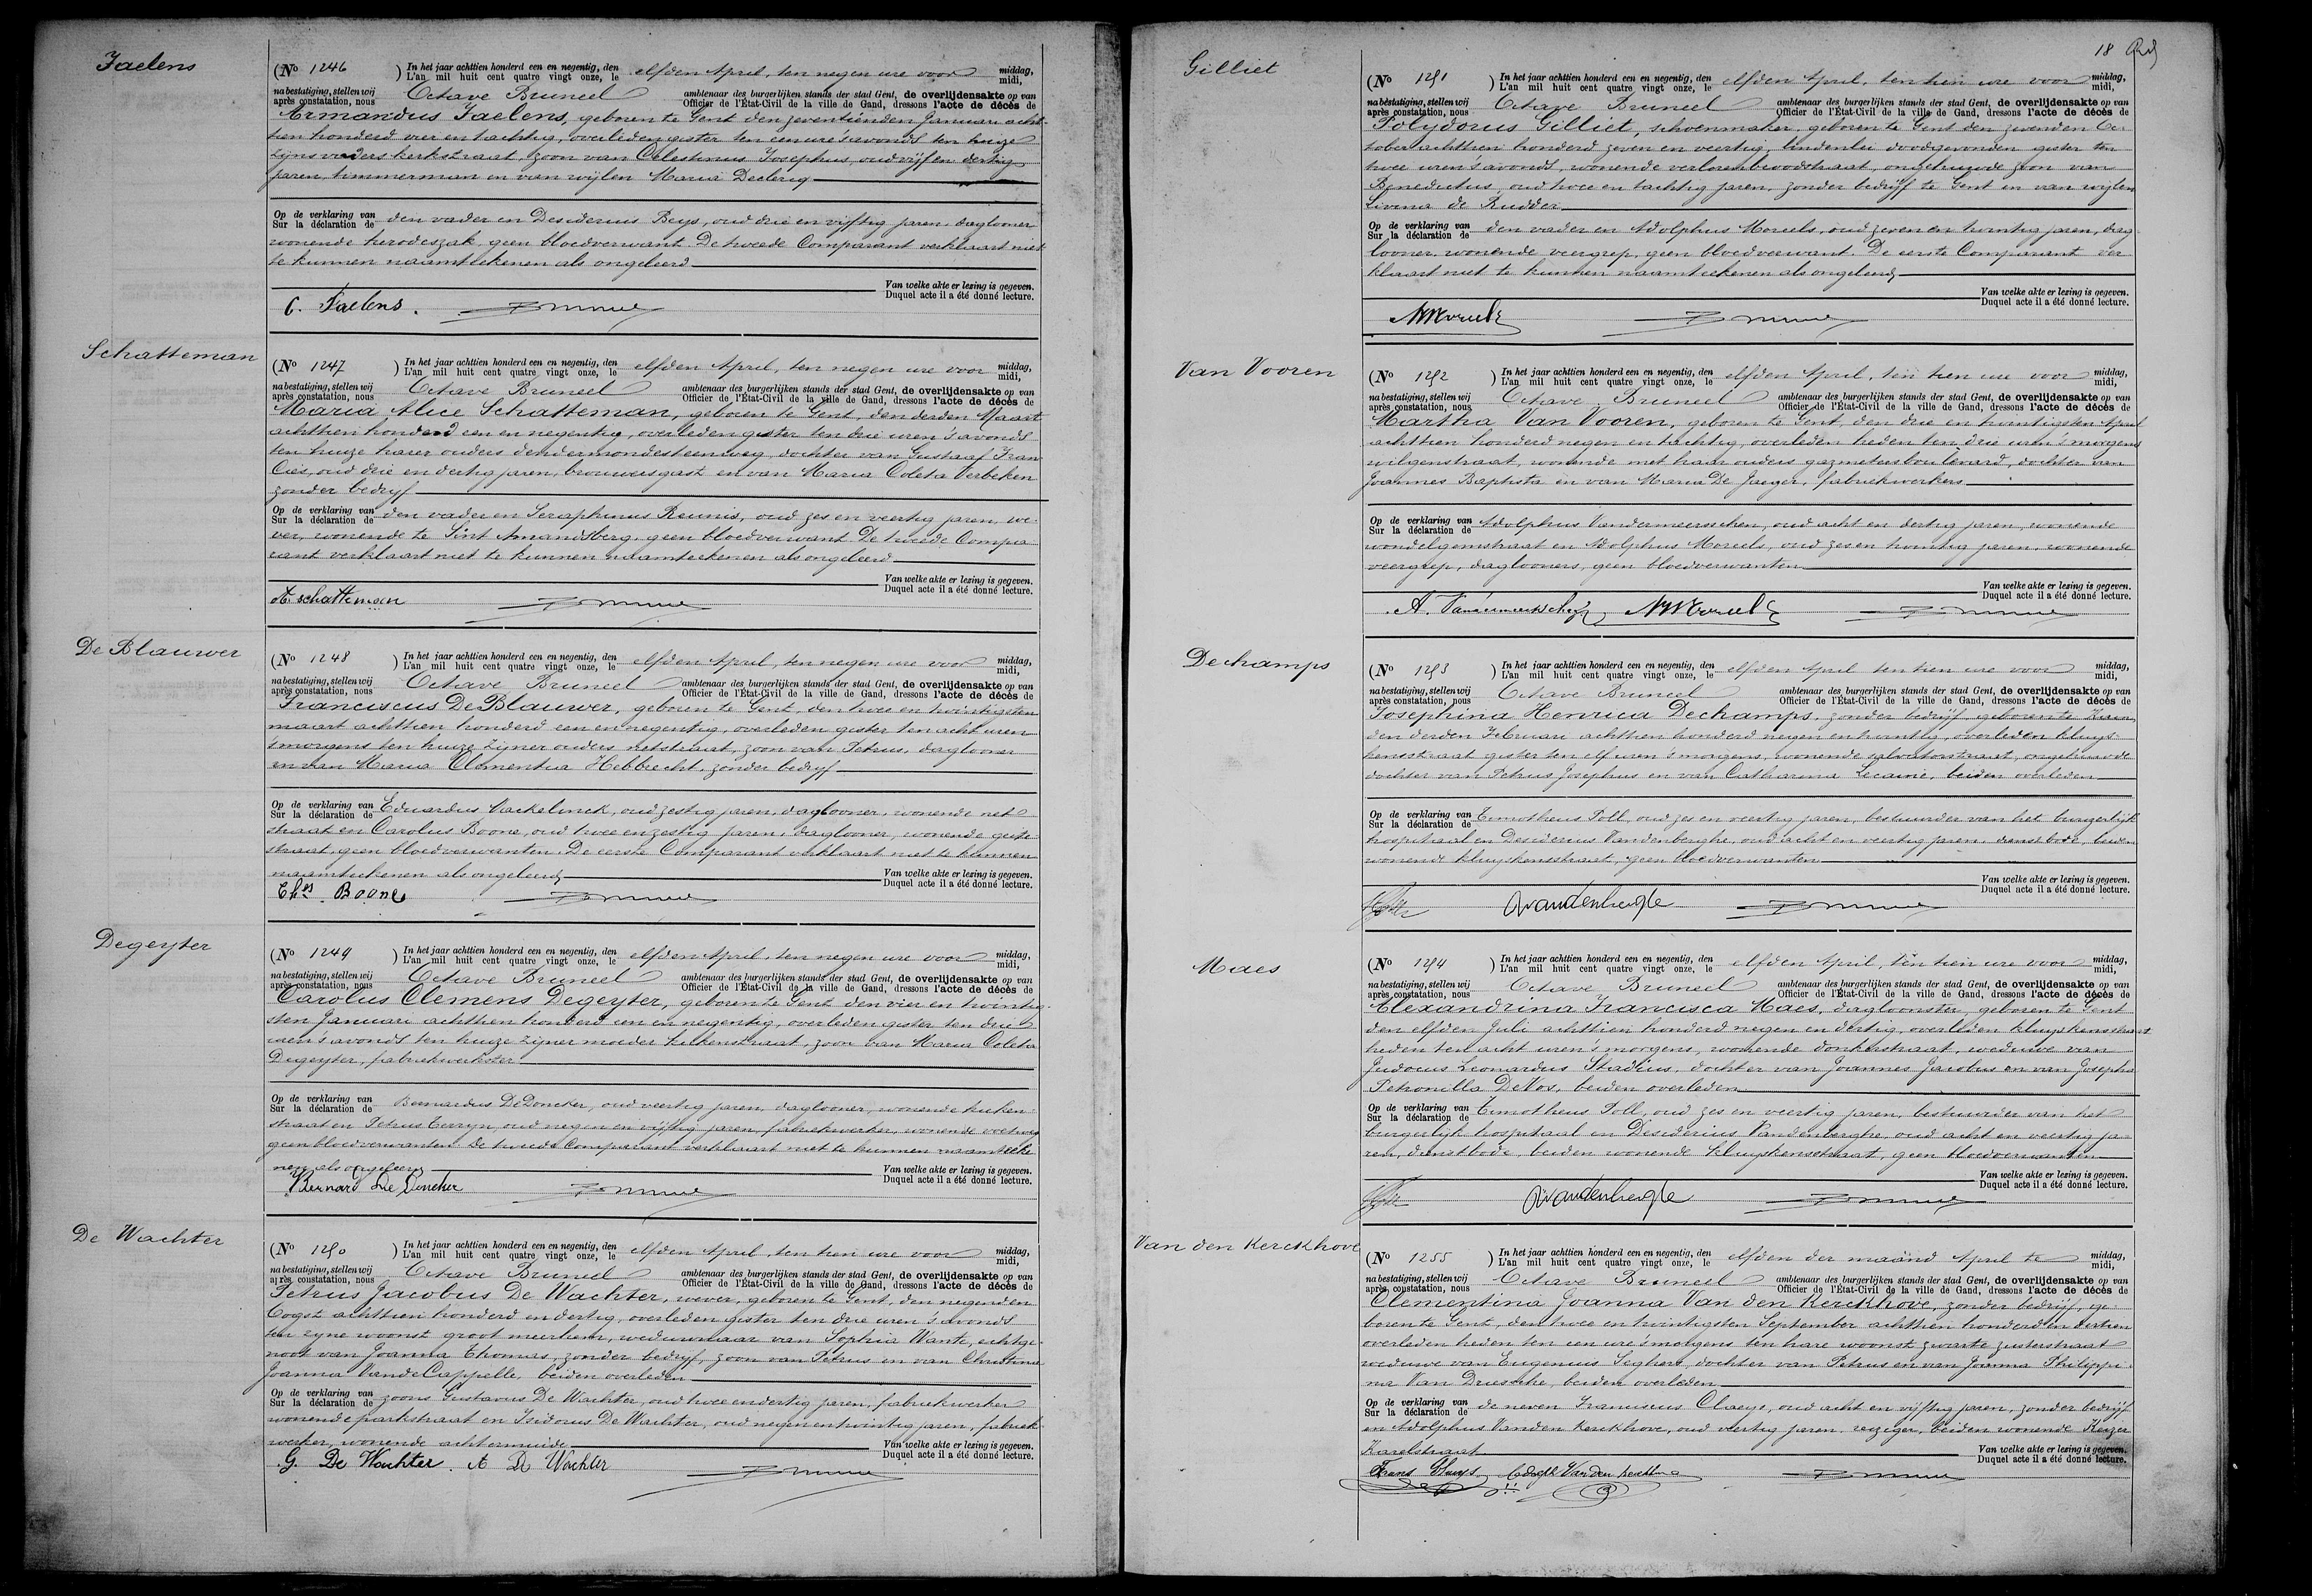 Faelens
(No 1246 ) In het jaar achttien honderd een en negentig, den elfden April, ten negen ure voor middag,
L'an mil huit cent quatre vingt onze, le midi,
na bestatiging, stellen wij Octave Bruneel ambtenaar des burgerlijken stands der stad Gent, de overlijdensakte op van
après constatation, nous Officier de l'État-Civil de la ville de Gand, dressons l'acte de décès de
Armandus Faelens, geboren te Gent den zeventienden Januari acht-
tien honderd vier en tachtig, overleden gister ten een ure 's avonds ten huize
zijns vaders kerkstraat, zoon van Celestinus Josephus, oud vijf en dertig
jaren, timmerman en van wijlen Maria Declercq
Op de verklaring van den vader en Desiderius Buys, oud drie en vijftig jaren, daglooner
Sur la déclaration de
wonende herodeszak, geen bloedverwant. De tweede Comparant verklaart niet
te kunnen naamteekenen als ongeleerd
Van welke akte er lezing is gegeven.
Duquel acte il a été donné lecture.
C. Faelens.
Schatteman
(No 1247 ) In het jaar achttien honderd een en negentig, den elfden April, ten negen ure voor middag,
L'an mil huit cent quatre vingt onze, le midi,
na bestatiging, stellen wij Octave Bruneel ambtenaar des burgerlijken stands der stad Gent, de overlijdensakte op van
après constatation, nous Officier de l'État-Civil de la ville de Gand, dressons l'acte de décès de
Maria Alice Schatteman, geboren te Gent, den derden Maart
achttien honderd een en negentig, overleden gister ten drie uren 's avonds
ten huize harer ouders dendermondesteenweg, dochter van Gustaaf Fran-
cies, oud drie en dertig jaren, brouwersgast en van Maria Coleta Verbeken
zonder bedrijf
Op de verklaring van den vader en Seraphinus Reunis, oud zes en veertig jaren, we-
Sur la déclaration de
ver, wonende te Sint Amandsberg, geen bloedverwant. De tweede Compa-
rant verklaart niet te kunnen naamteekenen als ongeleerd
Van welke akte er lezing is gegeven.
Duquel acte il a été donné lecture.
schatteman
De Blauwer
(No 1248 ) In het jaar achttien honderd een en negentig, den elfden April, ten negen ure voor middag,
L'an mil huit cent quatre vingt onze, le midi,
na bestatiging, stellen wij Octave Bruneel ambtenaar des burgerlijken stands der stad Gent, de overlijdensakte op van
après constatation, nous Officier de l'État-Civil de la ville de Gand, dressons l'acte de décès de
Franciscus De Blauwer, geboren te Gent, den twee en twintigsten
maart achttien honderd een en negentig, overleden gister ten acht uren
's morgens ten huize zijner ouders netstraat, zoon van Petrus, daglooner
en van Maria Clementia Hebbrecht, zonder bedrijf
Op de verklaring van Eduardus Vackelinck, oud zestig jaren, daglooner, wonende net-
Sur la déclaration de
straat en Carolus Boone, oud twee en zestig jaren, daglooner, wonende
straat, geen bloedverwanten. De eerste Comparant verklaart niet te kunnen
naamteekenen als ongeleerd
Van welke akte er lezing is gegeven.
Duquel acte il a été donné lecture.
Ches Boone
Degeyter
(No 1249 ) In het jaar achttien honderd een en negentig, den elfden April, ten negen ure voor middag,
L'an mil huit cent quatre vingt onze, le midi,
na bestatiging, stellen wij Octave Bruneel ambtenaar des burgerlijken stands der stad Gent, de overlijdensakte op van
après constatation, nous Officier de l'État-Civil de la ville de Gand, dressons l'acte de décès de
Carolus Clemens Degeyter, geboren te Gent den vier en twintig-
sten Januari achttien honderd een en negentig, overleden gister ten drie
uren 's avonds ten huize zijner moeder kuikenstraat, zoon van Maria Coleta
Degeyter, fabriekwerkster
Op de verklaring van Bernardus De Doncker, oud veertig jaren, daglooner, wonende kuiken-
Sur la déclaration de
straat en Petrus Terryn, oud negen en vijftig jaren, fabriekwerker, wonende
geen bloedverwanten. De tweede Comparant verklaart niet te kunnen naamteeke-
nen als ongeleerd
Van welke akte er lezing is gegeven.
Duquel acte il a été donné lecture.
Bernard De Doncker
De Wachter
(No 1250 ) In het jaar achttien honderd een en negentig, den elfden April, ten tien ure voor middag,
L'an mil huit cent quatre vingt onze, le midi,
na bestatiging, stellen wij Octave Bruneel ambtenaar des burgerlijken stands der stad Gent, de overlijdensakte op van
après constatation, nous Officier de l'État-Civil de la ville de Gand, dressons l'acte de décès de
Petrus Jacobus De Wachter, wever, geboren te Gent, den negenden
Oogst achttien honderd en dertig, overleden gister ten drie uren 's avonds
ten zyne woonst groot meerhem, weduwnaar van Sophia Wante, echtge-
noot van Joanna Thomas, zonder bedrijf, zoon van Petrus en van Christina
Joanna Vande Cappelle, beiden overleden
Op de verklaring van zoons Gustavus De Wachter, oud twee en dertig jaren, fabriekwerker
Sur la déclaration de
wonende parkstraat en Isidorus De Wachter, oud negen en twintig jaren, fabriek-
werker, wonende achtermuide
Van welke akte er lezing is gegeven.
Duquel acte il a été donné lecture.
G. De Wachter. A De Wachter
18
Gilliet
(No 1251 ) In het jaar achttien honderd een en negentig, den elfden April, ten tien ure voor middag,
L'an mil huit cent quatre vingt onze, le midi,
na bestatiging, stellen wij Octave Bruneel ambtenaar des burgerlijken stands der stad Gent, de overlijdensakte op van
après constatation, nous Officier de l'État-Civil de la ville de Gand, dressons l'acte de décès de
Polydorus Gilliet, schoenmaker, geboren te Gent den zevenden Oc-
tober achttien honderd zeven en veertig, lindenlei doodgevonden gister ten
twee uren 's avonds, wonende verlorenbroodstraat, ongehuwde zoon van
Benedictus, oud twee en tachtig jaren, zonder bedrijf te Gent en van wijlen
Livina de Rudder
Op de verklaring van den vader en Adolphus Moreels, oud zeven en twintig jaren, dag-
Sur la déclaration de
looner, wonende veergrep, geen bloedverwant. De eerste Comparant ver-
klaart niet te kunnen naamteekenen als ongeleerd
Van welke akte er lezing is gegeven.
Duquel acte il a été donné lecture.
Van Vooren
(No 1252 ) In het jaar achttien honderd een en negentig, den elfden April, ten tien ure voor middag,
L'an mil huit cent quatre vingt onze, le midi,
na bestatiging, stellen wij Octave Bruneel ambtenaar des burgerlijken stands der stad Gent, de overlijdensakte op van
après constatation, nous Officier de l'État-Civil de la ville de Gand, dressons l'acte de décès de
Martha Van Vooren, geboren te Gent, den drie en twintigsten April
achttien honderd negen en tachtig, overleden heden ten drie uren 's morgens
wilgenstraat, wonende met haar ouders gazmetersboulevard, dochter van
Joannes Baptista en van Maria De Jaeger, fabriekwerkers
Op de verklaring van Adolphus Vandermeersschen, oud acht en dertig jaren, wonende
Sur la déclaration de
wondelgemstraat en Adolphus Moreels, oud zes en twintig jaren, wonende
veergrep, daglooners, geen bloedverwanten
Van welke akte er lezing is gegeven.
Duquel acte il a été donné lecture.
Dechamps
(No 1253 ) In het jaar achttien honderd een en negentig, den elfden April ten tien ure voor middag,
L'an mil huit cent quatre vingt onze, le midi,
na bestatiging, stellen wij Octave Bruneel ambtenaar des burgerlijken stands der stad Gent, de overlijdensakte op van
après constatation, nous Officier de l'État-Civil de la ville de Gand, dressons l'acte de décès de
Josephina Henrica Dechamps, zonder bedrijf geboren te
den derden Februari achttien honderd negen en twintig, overleden kluys-
kensstraat gister ten elf uren 's morgens, wonende salvatorstraat, ongehuwde
dochter van Petrus Josephus en van Catharina Lecaine, beiden overleden
Op de verklaring van Timotheus Poll, oud zes en veertig jaren, bestuurder van het burgerlijk
Sur la déclaration de
hospitaal en Desiderius Vandenberghe, oud acht en veertig jaren, dienstbode, beiden
wonende kluyskensstraat, geen bloedverwanten
Van welke akte er lezing is gegeven.
Duquel acte il a été donné lecture.
Dvandenberghe
Maes
(No 1254 ) In het jaar achttien honderd een en negentig, den elfden April, ten tien ure voor middag,
L'an mil huit cent quatre vingt onze, le midi,
na bestatiging, stellen wij Octave Bruneel ambtenaar des burgerlijken stands der stad Gent, de overlijdensakte op van
après constatation, nous Officier de l'État-Civil de la ville de Gand, dressons l'acte de décès de
Alexandrina Francisca Maes, dagloonster, geboren te Gent
den elfden Juli achttien honderd negen en dertig, overleden kluyskensstraat
heden ten acht uren 's morgens, wonende donkerstraat, weduwe van
Judocus Leonardus Stadius, dochter van Joannes Jacobus en van Josepha
Petronilla De Vos, beiden overleden
Op de verklaring van Timotheus Poll, oud zes en veertig jaren, bestuurder van het
Sur la déclaration de
burgerlijk hospitaal en Desiderius Vandenberghe, oud acht en veertig ja-
ren, dienstbode, beiden wonende kluyskensstraat, geen bloedverwanten
Van welke akte er lezing is gegeven.
Duquel acte il a été donné lecture.
Dvandenberghe
Van den Kerckhove
(No 1255 ) In het jaar achttien honderd een en negentig, den elfden der maand April te middag,
L'an mil huit cent quatre vingt onze, le midi,
na bestatiging, stellen wij Octave Bruneel ambtenaar des burgerlijken stands der stad Gent, de overlijdensakte op van
après constatation, nous Officier de l'État-Civil de la ville de Gand, dressons l'acte de décès de
Clementina Joanna Van den Kerckhove, zonder bedrijf, ge-
boren te Gent, den twee en twintigsten September achttien honderd en dertien
overleden heden ten een ure 's morgens ten hare woonst zwarte zusterstraat
weduwe van Eugenius Seghers, dochter van Petrus en van Joanna Philippi-
na Van Driessche, beiden overleden
Op de verklaring van de neven Franciscus Claeys, oud acht en vijftig jaren, zonder bedrijf
Sur la déclaration de
en Adolphus Vanden Kerckhove, oud veertig jaren, reiziger, beiden wonende Keizer
Karelstraat
Van welke akte er lezing is gegeven.
Duquel acte il a été donné lecture.
Frans Claeys Adolf Van den Kerckhove